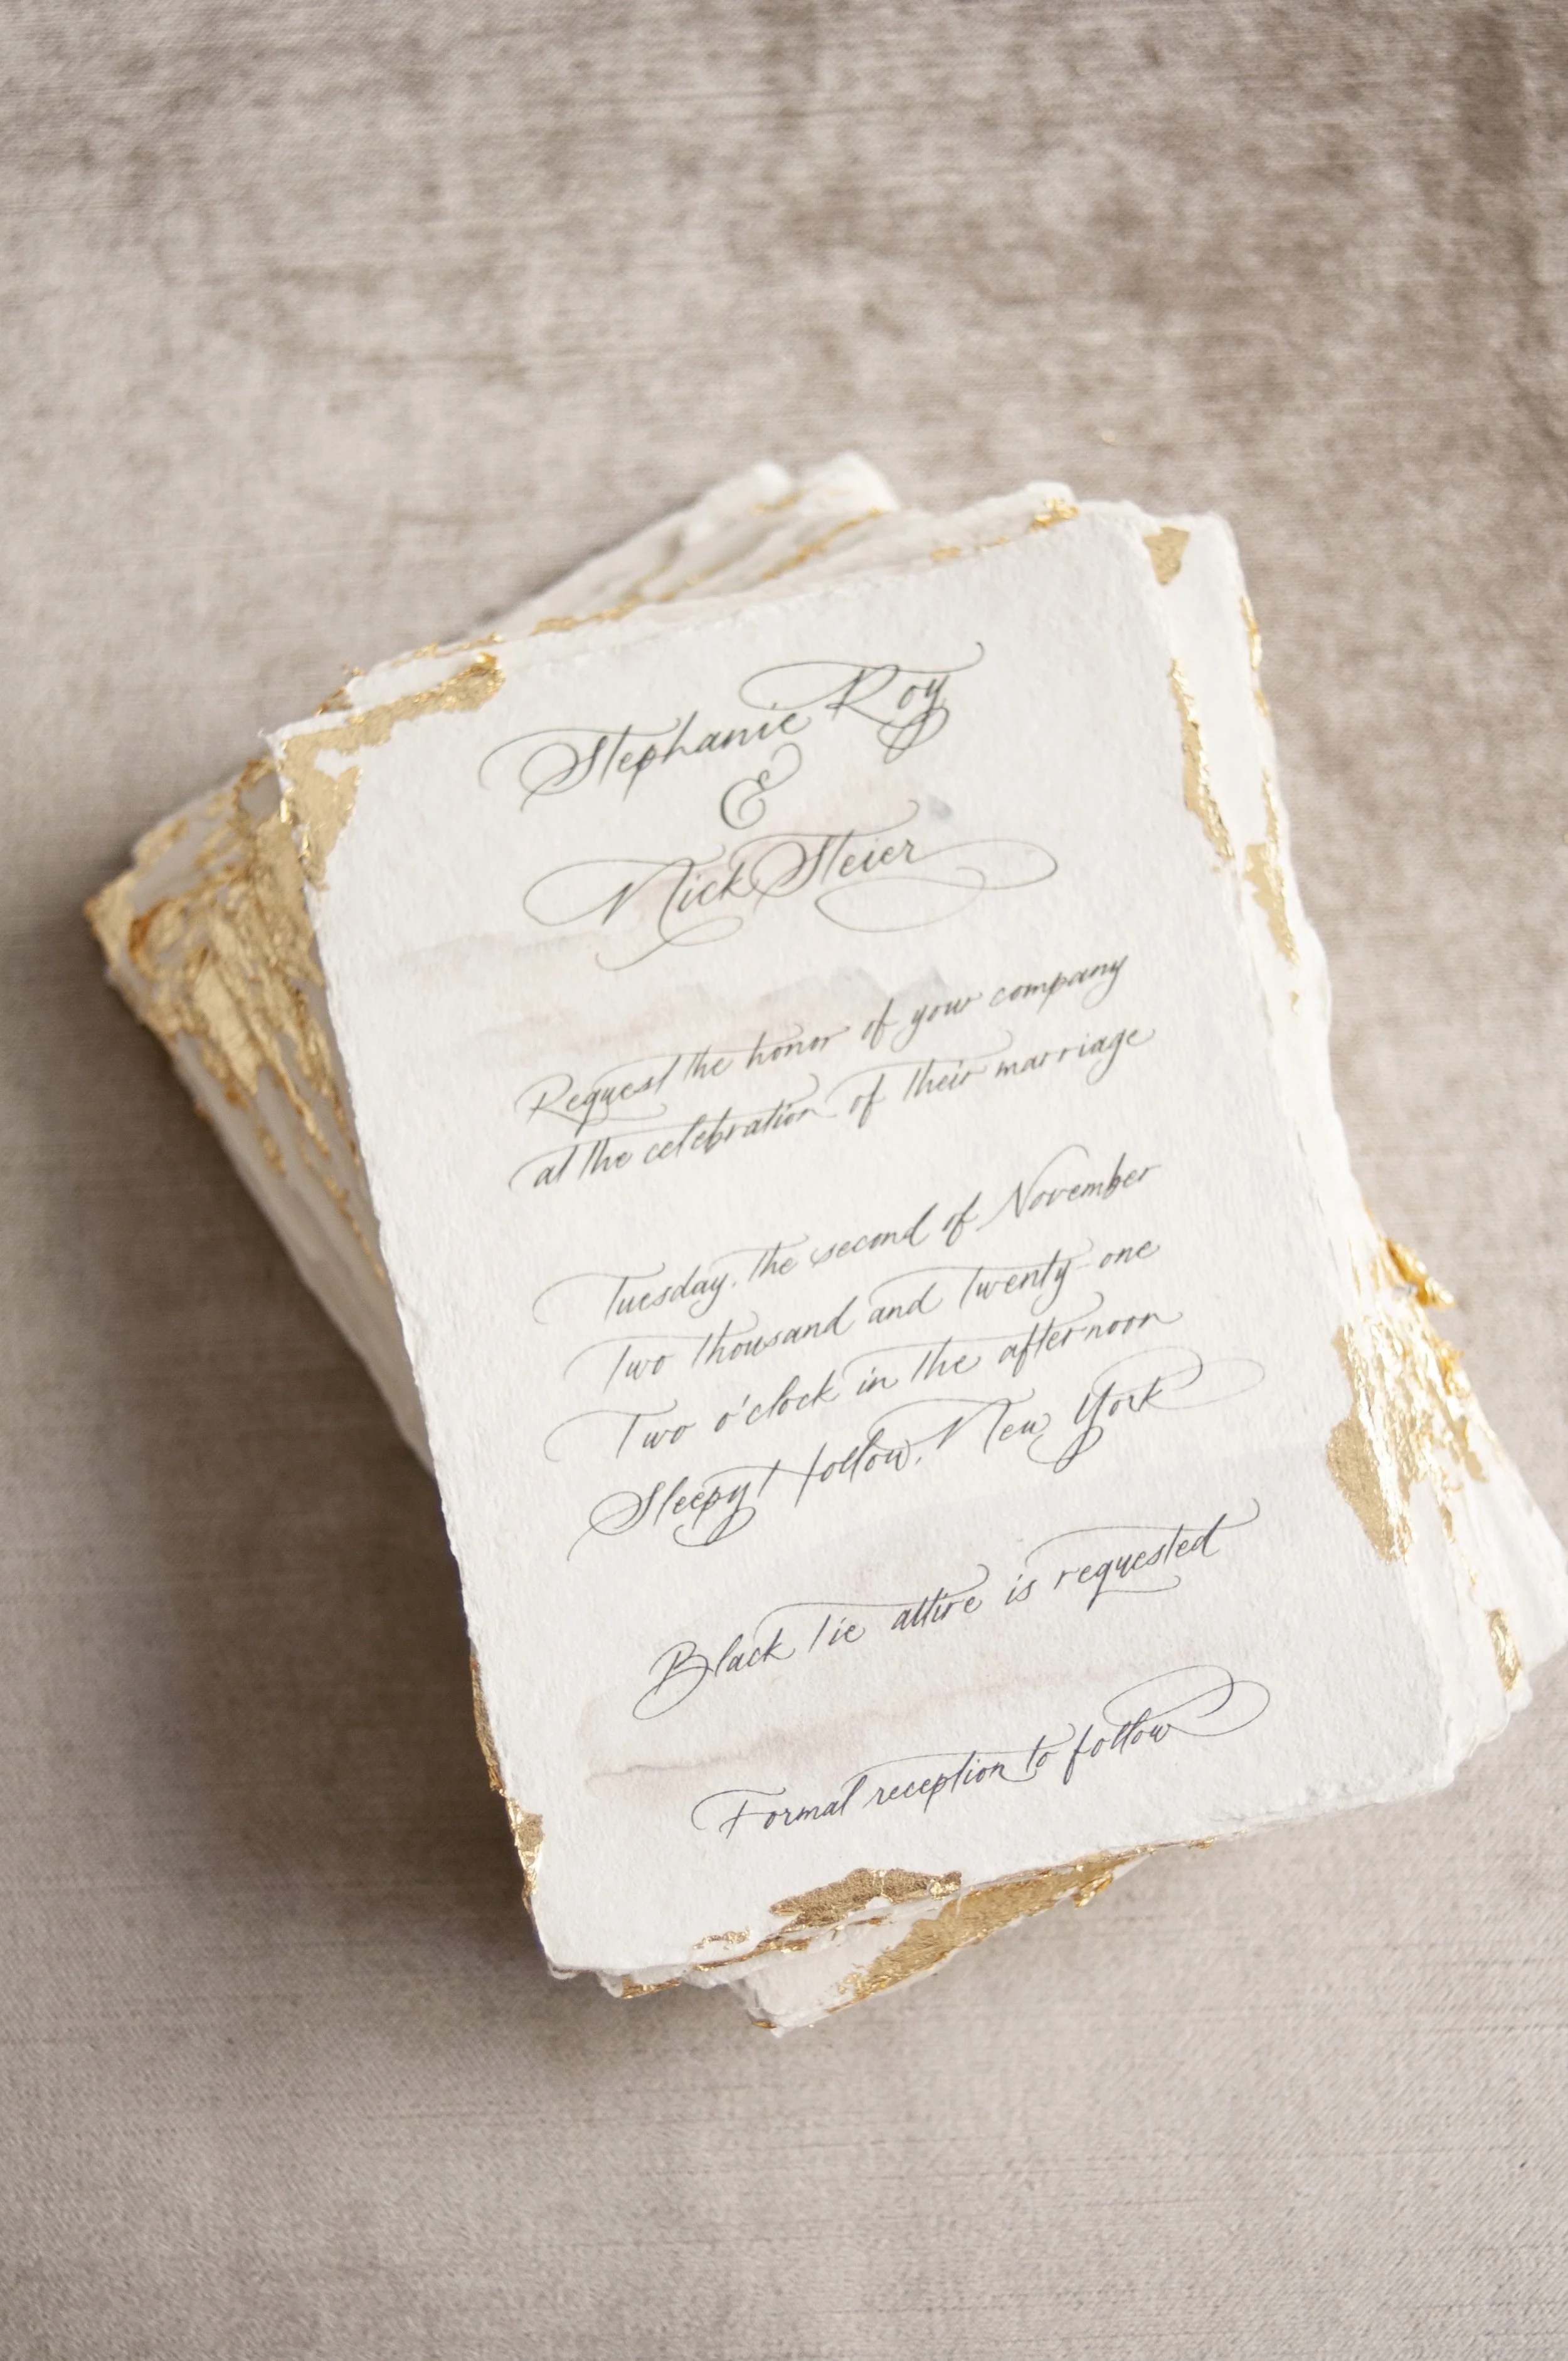 Stephanie Roy
&
Nick Steier
Request the honor of your company
at the celebration of their marriage
Tuesday, the second of November
Two thousand and twenty-one
Two o'clock in the afternoon
Sleepy Hollow, New York
Black tie attire is requested
Formal reception to follow